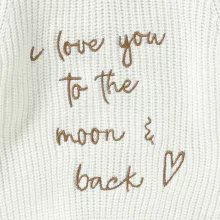 i love you
to the
moon &
back ♡